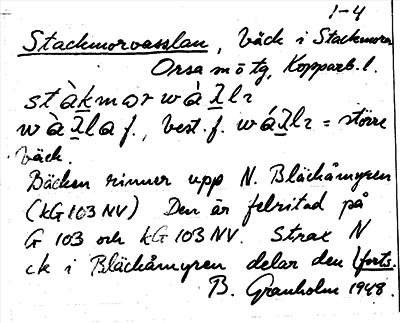 1-4
Stackmorvasslan, bäck i Stackmora
Orsa m o tg, Kopparb. l.
stàkmor wàλlr
wàλla f., best. f. wáλlr = större
bäck.
Bäcken rinner upp N. Blackåmyren
(kG 103 NV) Den är felritad på
G 103 och kG 103 NV. Strax N
ck i Bläckåmyren delar den (forts.
B. Granholm 1948.